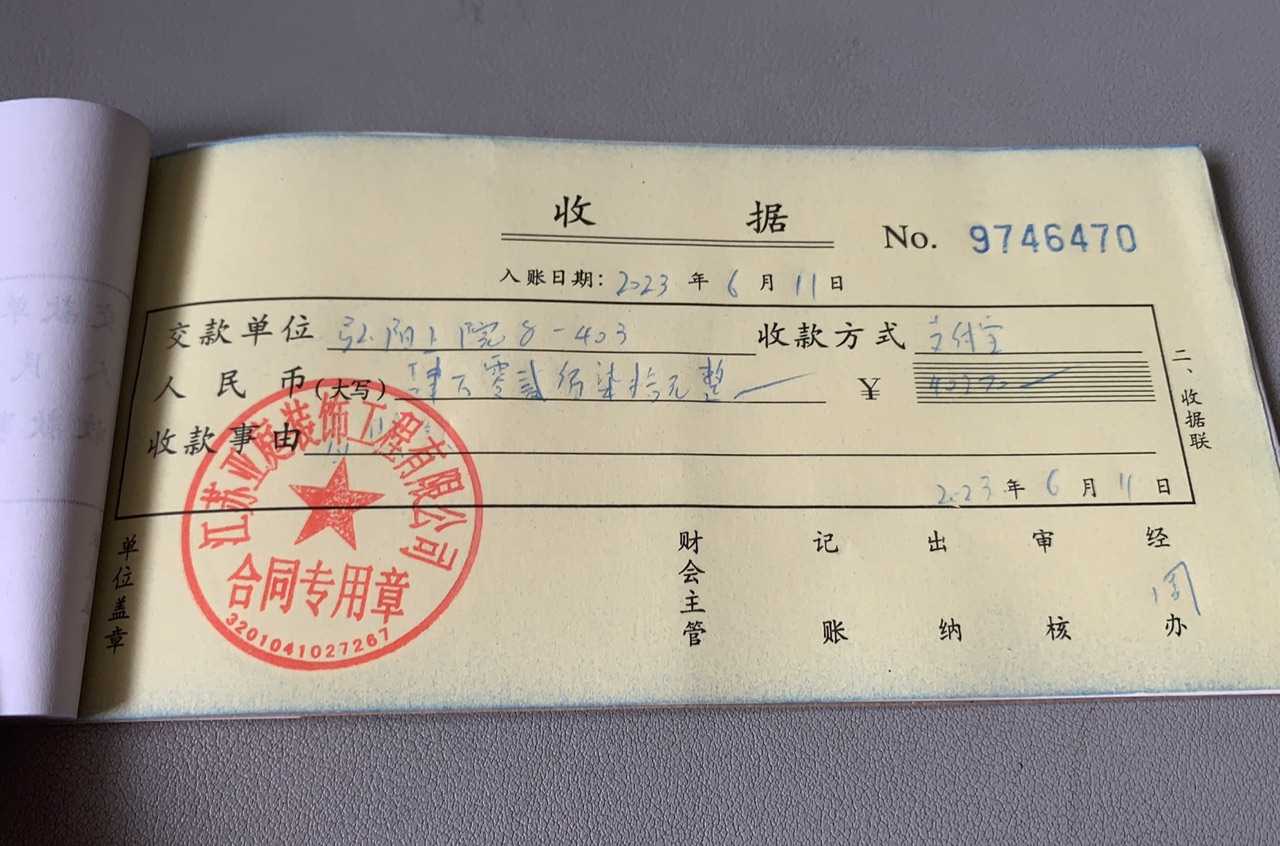 收 据
No. 9746470
入账日期: 2023 年 6 月 11 日
交款单位 弘阳上院8-403 收款方式 支付宝
人民币(大写) 肆万零贰佰柒拾元整 ¥ 40270
收款事由
2023 年 6 月 11 日
二、收据联
江苏亚庭装饰工程有限公司
合同专用章
3201041027267
单位盖章 财会主管 记账 出纳 审核 经办 周